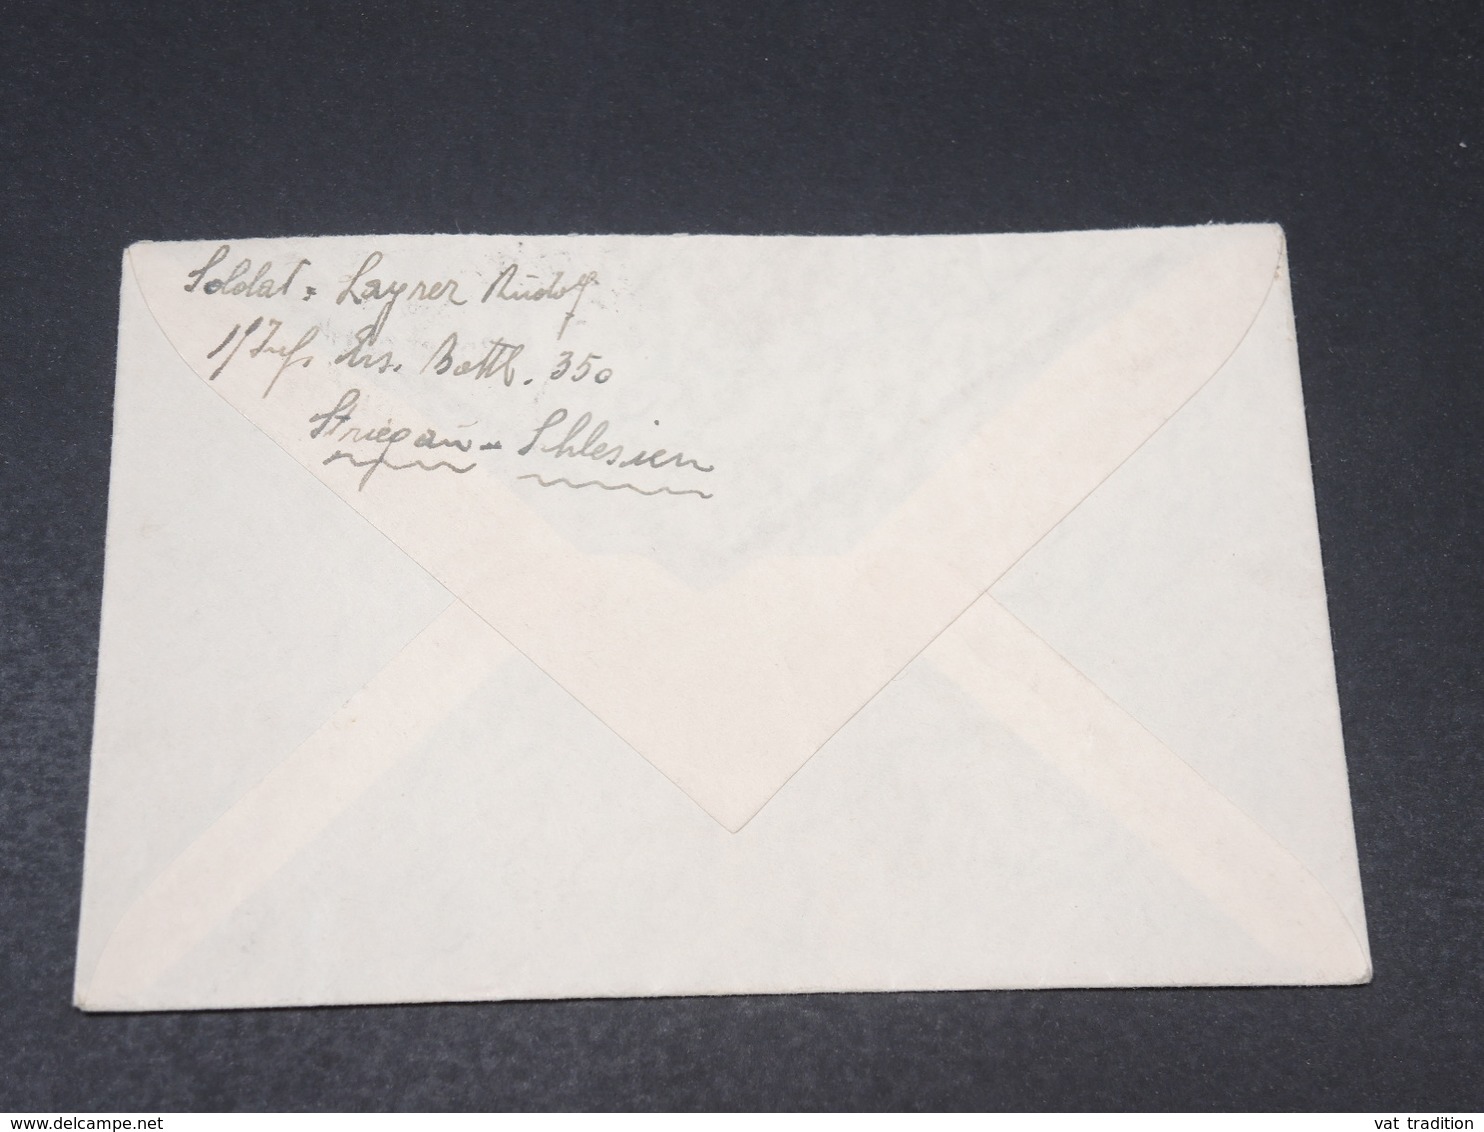 Soldat = Layrer Rudolf
1/Inf. Ers. Battl. 350
Striegau - Schlesien
delcampe.net
vat tradition